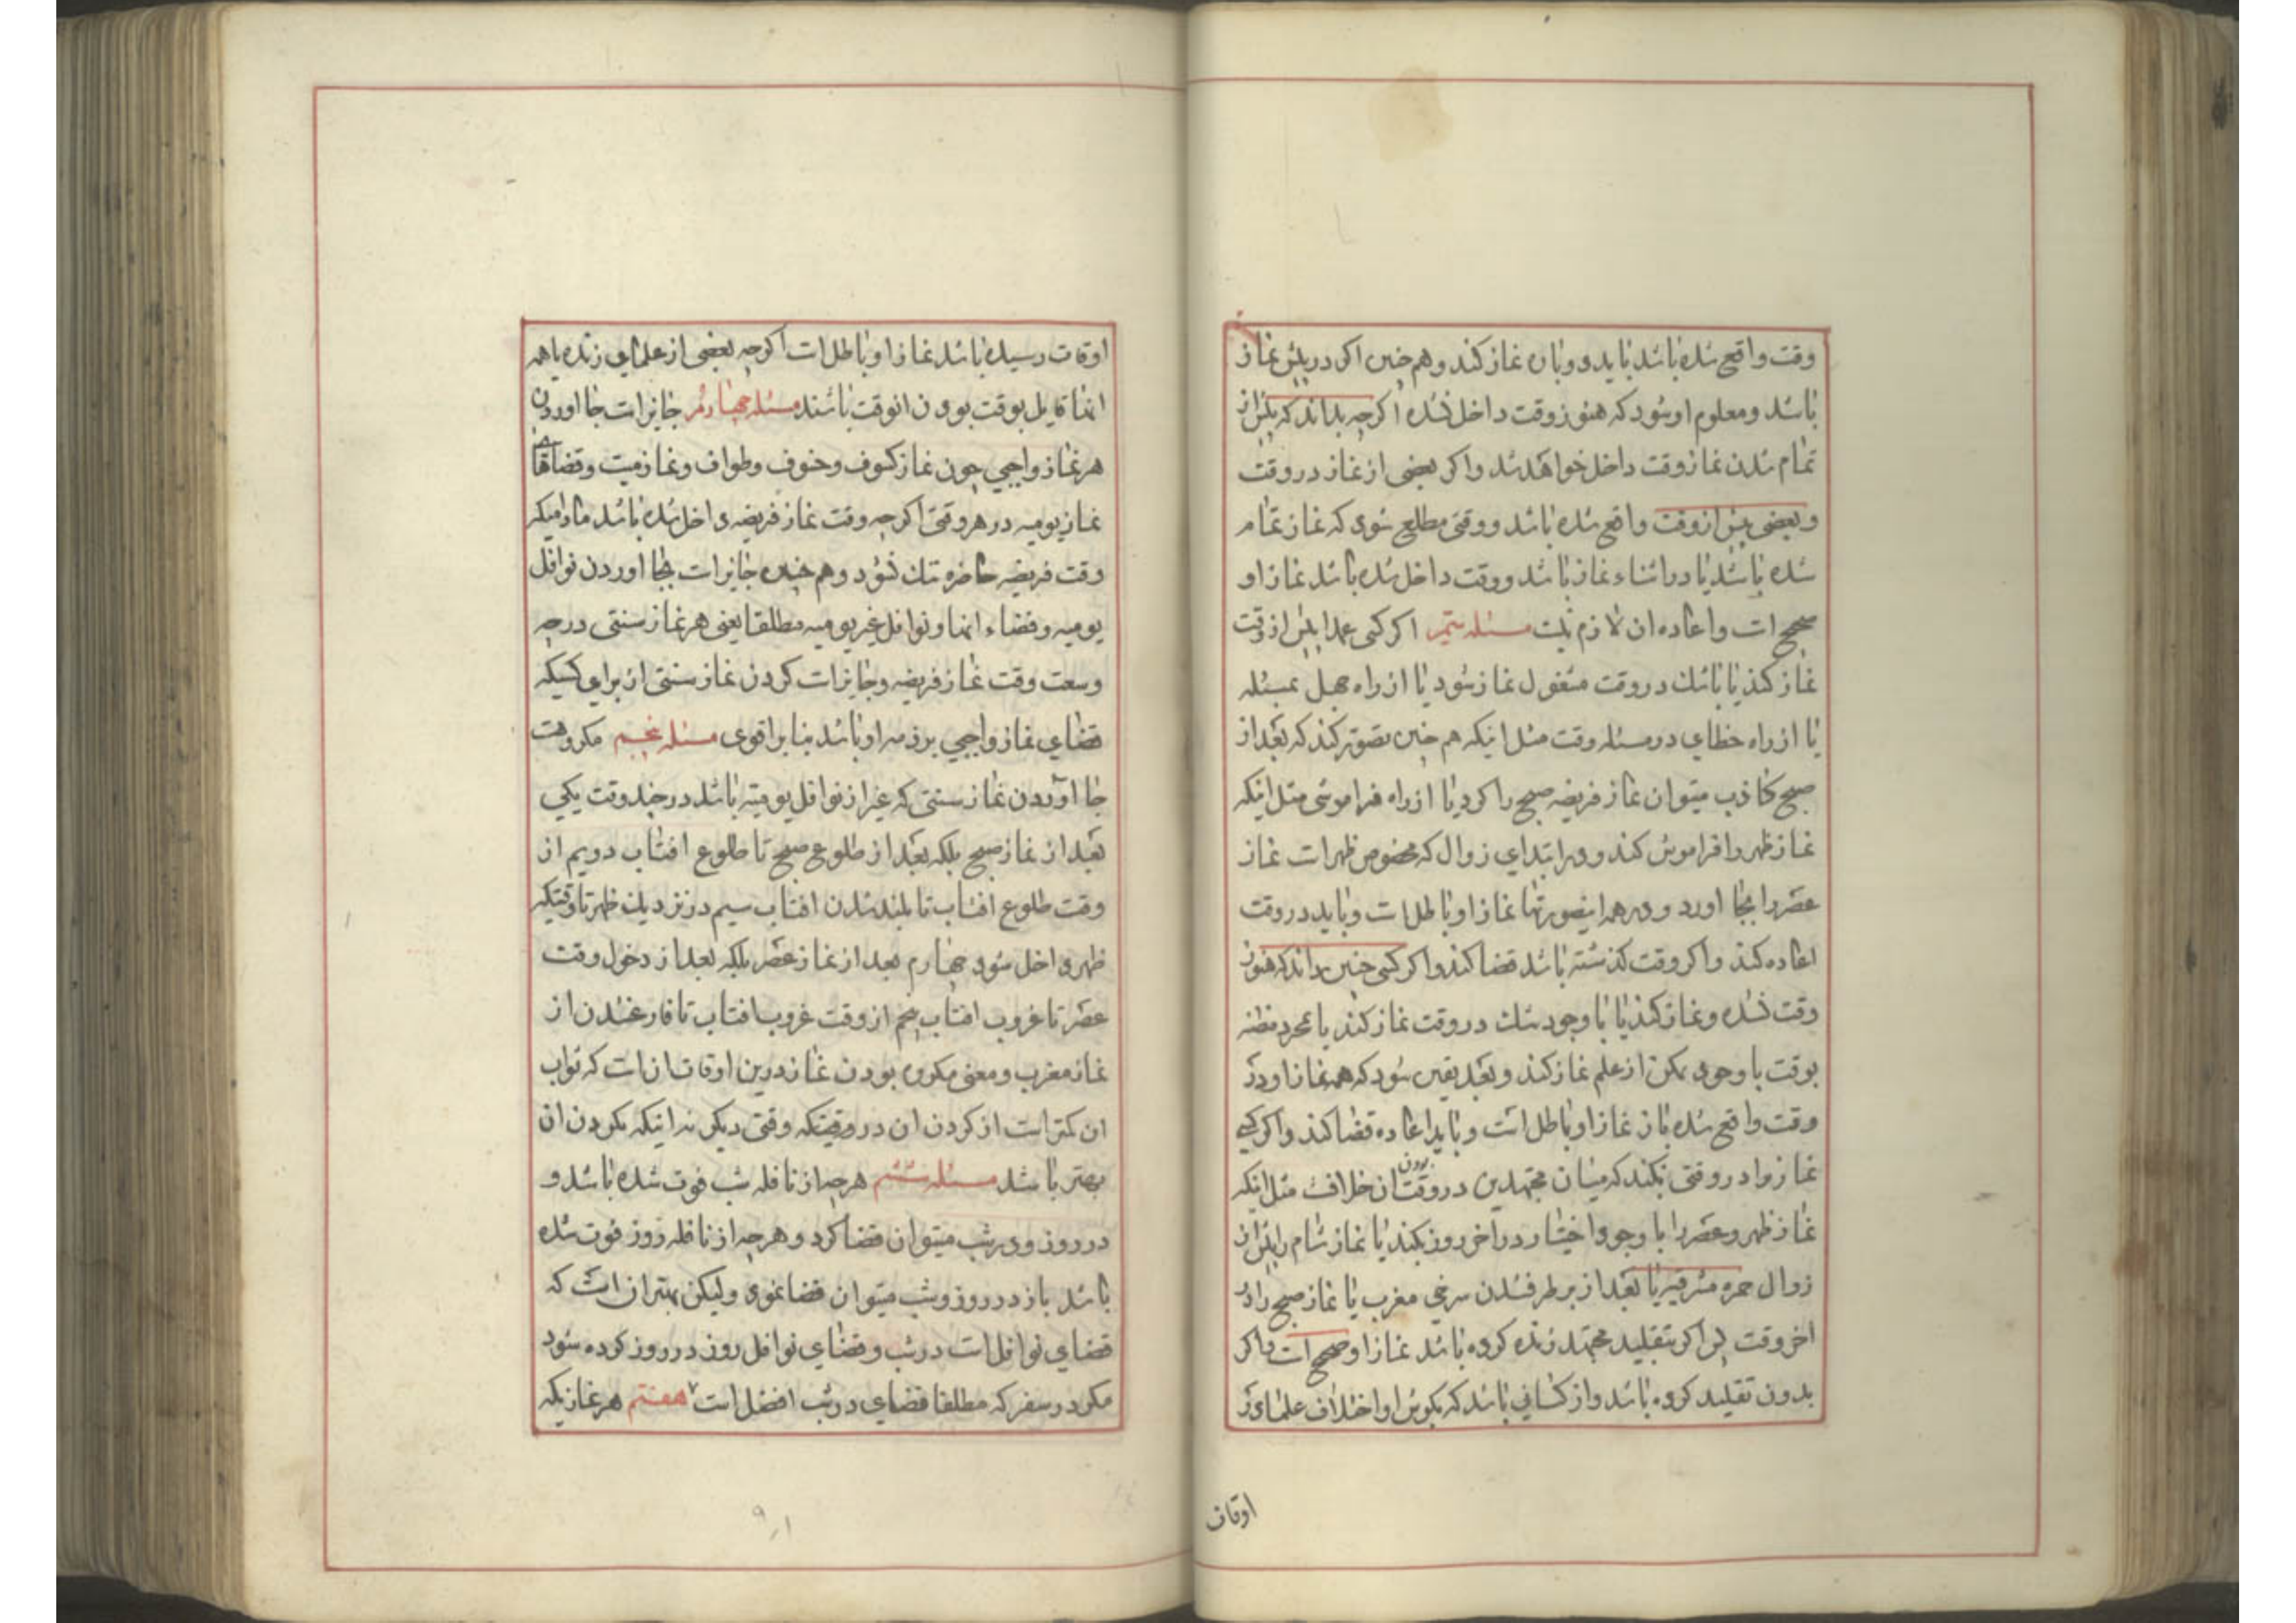 وقت واقع شده باشد باید دوباره نماز کند و هم چنین اکر در پیش نماز
باشد و معلوم او شود که هنوز وقت داخل نشده اکرچه بداند که پیش از
تمام شدن نماز وقت داخل خواهد شد و اکر بعضی از نماز در وقت
و بعضی پیش از وقت واقع شده باشد و وقتی مطلع شود که نماز تمام
شده باشد یا در اثناء نماز باشد و وقت داخل شده باشد نماز او
صحیح است و اعاده ان لازم نیست مسئله سیّم اکر کسی عمدا پیش از وقت
نماز کند یا با شک در وقت مشغول نماز شود یا از راه جهل بمسئله
یا از راه خطای در مسئله وقت مثل اینکه هم چنین تصوّر کند که بعد از
صبح کاذب میتوان نماز فریضه صبح را کرد یا از راه فراموشی مثل اینکه
نماز ظهر را فراموش کند و در ابتدای زوال که مخصوص ظهر است نماز
عصر را بجا اورد و در همه اینصورتها نماز او باطل است و باید در وقت
اعاده کند و اکر وقت کذشته باشد قضا کند و اکر کسی چنین داند که هنوز
وقت نشده و نماز کند یا با وجود شک در وقت نماز کند یا بمجرد مظنه
بوقت با وجود تمکن از علم نماز کند و بعد یقین شود که همه نماز او در
وقت واقع شده باز نماز او باطل است و باید اعاده قضا کند و اکر کسی
نماز را در وقتی بکند که میان مجتهدین در وقت بودن ان خلاف مثل اینکه
نماز ظهر و عصر را با وجود اختیار در آخر روز بکند یا نماز شام را پیش از
زوال حمره مشرقیه یا بعد از برطرفشدن سرخی مغرب یا نماز صبح را در
اخر وقت پس اکر بتقلید مجتهد زنده کرده باشد نماز او صحیح است و اکر
بدون تقلید کرده باشد و از کسانی باشد که بکوش او اختلاف علمای در
اوقات
اوقات رسیده باشد نماز او باطل است اکرچه بعضی از علمای زنده یا همه
انها قایل بوقت بودن انوقت باشند مسئله چهارم جایز است بجا اوردن
هر نماز واجبی چون نماز کسوف و خسوف و طواف و نماز میت و قضاهای
نماز یومیه در هر وقتی اکرچه وقت نماز فریضه داخل شده باشد مادامیکه
وقت فریضه حاضره تنک نشود و هم چنین جایز است بجا اوردن نوافل
یومیه و قضاء انها و نوافل غیر یومیه مطلقا یعنی هر نماز سنتی درچه
وسعت وقت نماز فریضه و جایز است کردن نماز سنتی از برای کسیکه
قضای نماز واجبی بر ذمه او باشد بنا بر اقوی مسئله پنجم مکروهست
بجا آوردن نماز سنتی که غیر از نوافل یومیّه باشد در چند وقت یکی
بعد از نماز صبح بلکه بعد از طلوع صبح تا طلوع افتاب دویم از
وقت طلوع افتاب تا بلند شدن افتاب سیم در نزدیک ظهر تا وقتیکه
ظهر داخل شود چهارم بعد از نماز عصر بلکه بعد از دخول وقت
عصر تا غروب افتاب پنجم از وقت غروب افتاب تا فارغشدن از
نماز مغرب و معنی مکروه بودن نماز درین اوقات ان است که ثواب
ان کمتر است از کردن ان در وقتیکه وقتی دیکر نه اینکه نکردن ان
بهتر باشد مسئله ششم هرچه از نافله شب فوت شده باشد و
در روز و در شب میتوان قضا کرد و هرچه از نافله روز فوت شده
باشد باز در روز و شب میتوان قضا نمود و لیکن بهتر ان است که
قضای نوافل است در شب و قضای نوافل روز در روز کرده شود
مکر در سفر که مطلقا قضای در شب افضل است ۷ هفتم هر نمازیکه